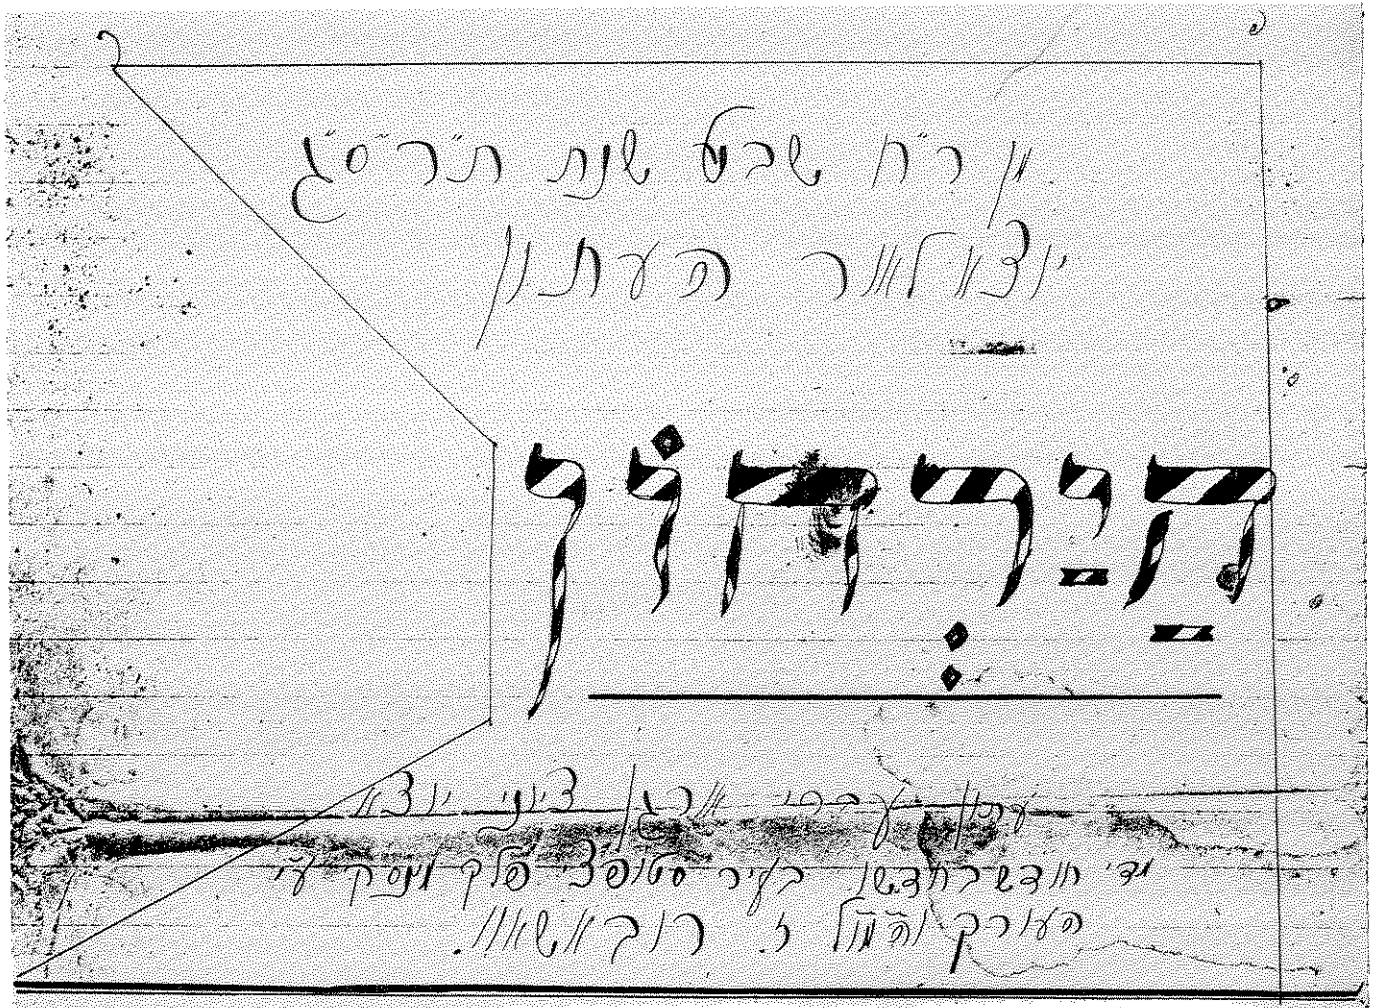 מן ר"ח שבט שנת ת"ר"ס"ג
יוצא לאור העתון
הַיַרְחוֹן
עתון עברי ארגן ציוני יוצא
מדי חודש בחדשו בעיר סטופצי פלך מינסק ע"י
העורך והמו"ל ז. רובאשאוו.